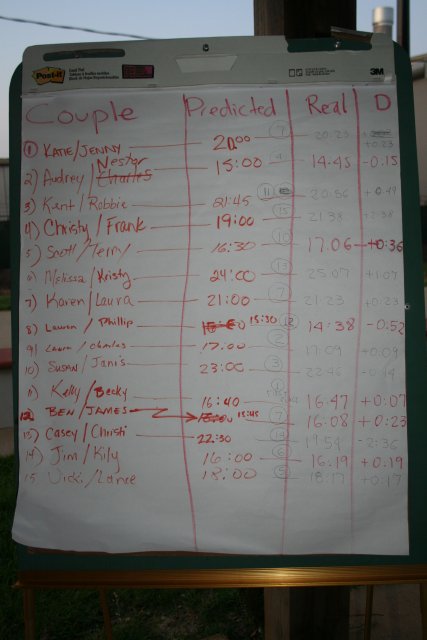 Post-it
3M
Couple Predicted Real D
1) KATIE/JENNY 20:00 7 20:23 +0:23
2) Audrey/Nestor Charles 15:00 4 14:45 -0:15
3) Kent/Robbie 21:45 11 20:56 -0:49
4) Christy/Frank 19:00 15 21:38 +2:38
5) Scott/Terry 16:30 10 17:06 +0:36
6) Melissa/Kristy 24:00 13 25:07 +1:07
7) Karen/Laura 21:00 7 21:23 +0:23
8) Lauren/Phillip 15:30 12 14:38 -0:52
9) Laura/Charles 17:00 2 17:09 +0:09
10) Susan/Janis 23:00 3 22:46 -0:14
11) Kelly/Becky 16:40 1 16:47 +0:07
12) BEN/JAMES 15:45 7 16:08 +0:23
13) Casey/Christi 22:30 14 19:54 -2:36
14) Jim/Kily 16:00 6 16:19 +0:19
15 Vicki/Lance 18:00 5 18:17 +0:17